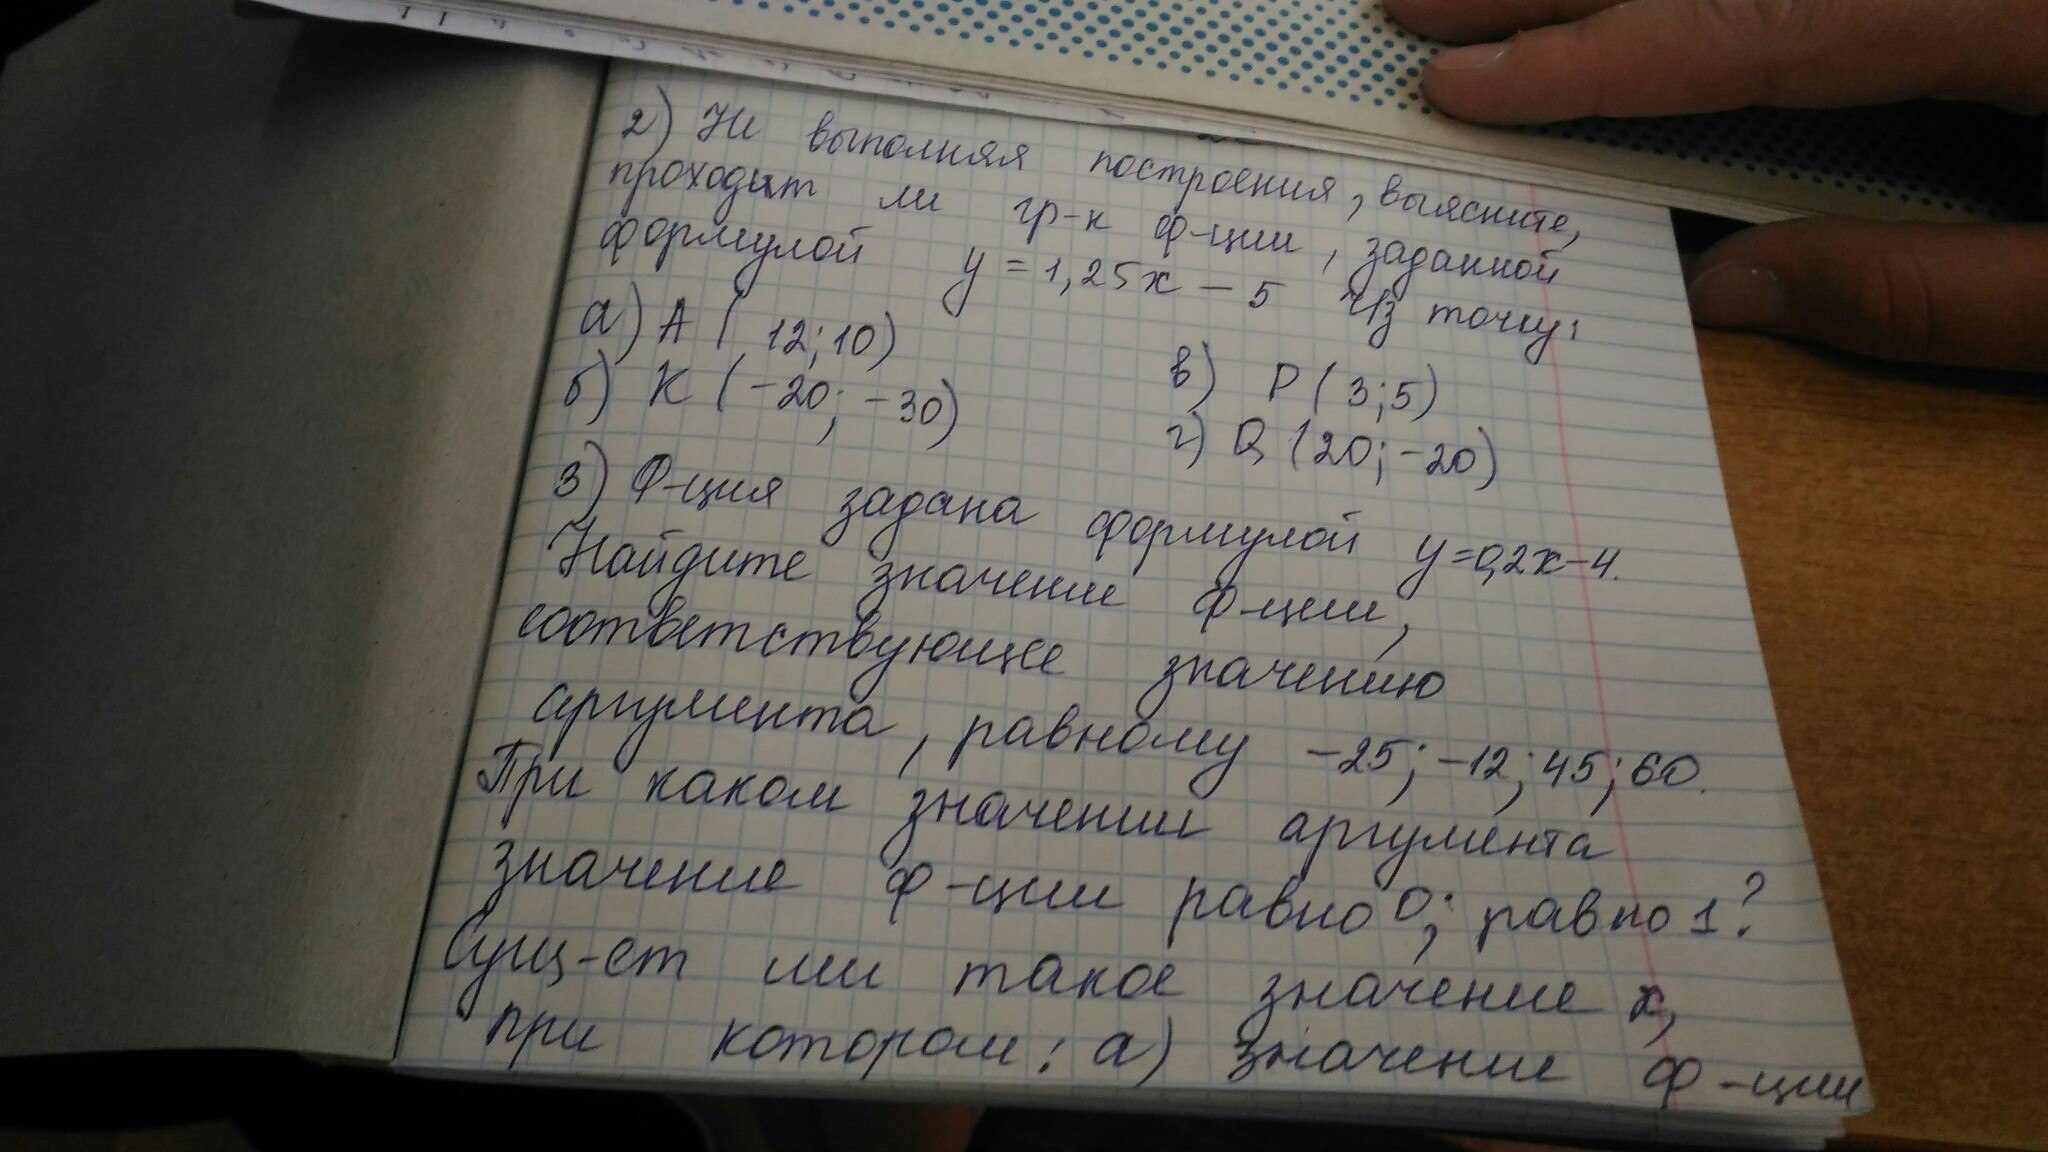 2) Не выполняя построения, выясните,
проходит ли гр-к ф-ции, заданной
формулой y = 1,25x - 5 ч/з точку:
а) A ( 12; 10)
б) K ( -20; -30)
в) P ( 3; 5)
г) Q (20; -20)
3) Ф-ция задана формулой y=0,2x-4.
Найдите значение ф-ции,
соответствующее значению
аргумента, равному -25; -12; 45; 60.
При каком значении аргумента
значение ф-ции равно 0; равно 1?
Сущ-ет ли такое значение x,
при котором: а) значение ф-ции